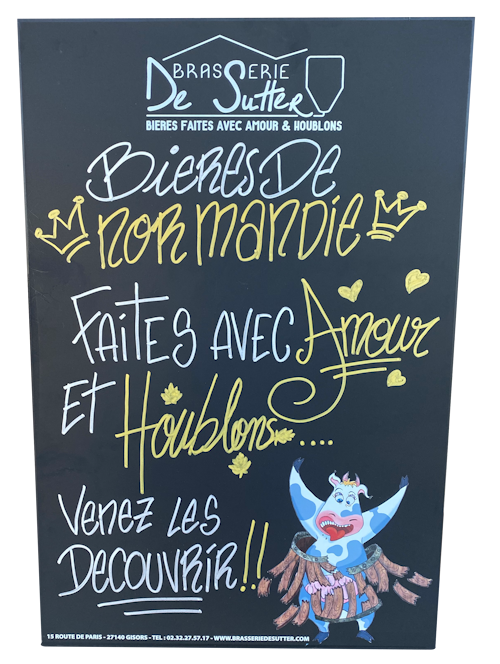 BRASSERIE
DE SUTTER
BIERES FAITES AVEC AMOUR & HOUBLONS
BIERES DE
NORMANDIE
FAITES AVEC Amour
ET Houblons....
VENEZ LES
DECOUVRIR!!
15 ROUTE DE PARIS - 27140 GISORS - TEL : 02.32.27.57.17 - WWW.BRASSERIEDESUTTER.COM